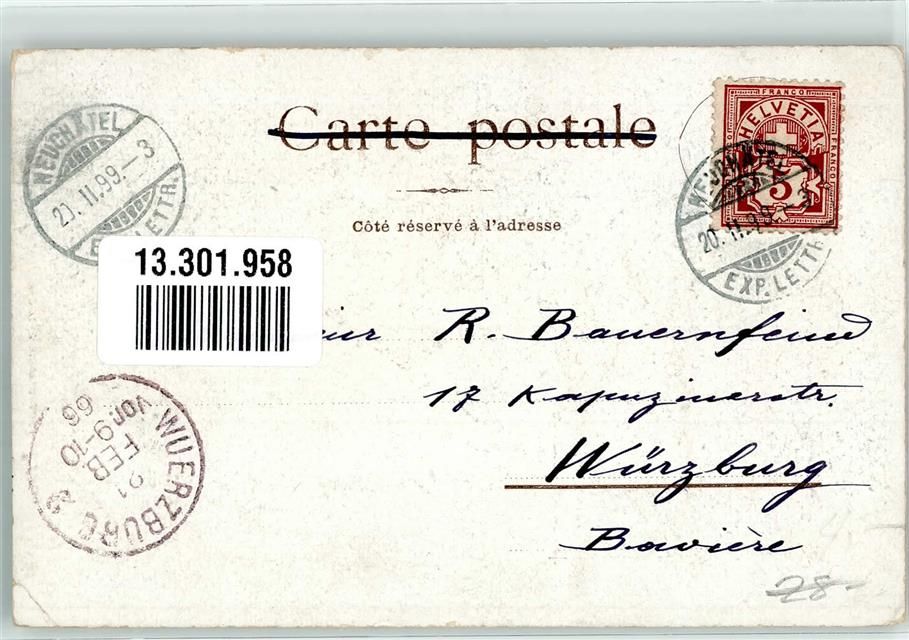 Carte postale
Côté réservé à l'adresse
FRANCO
HELVETIA
FRANCO
FRANCO
5
NEUCHÂTEL
20.II.99.-3
EXP. LETTR.
NEUCHÂTEL
20.II.99.-3
EXP. LETTR.
13.301.958
R. Bauernfeind
17 Kapuzinerstr.
Würzburg
Bavière
WUERZBURG 2
21
FEB
Vor. 9-10
99
28-